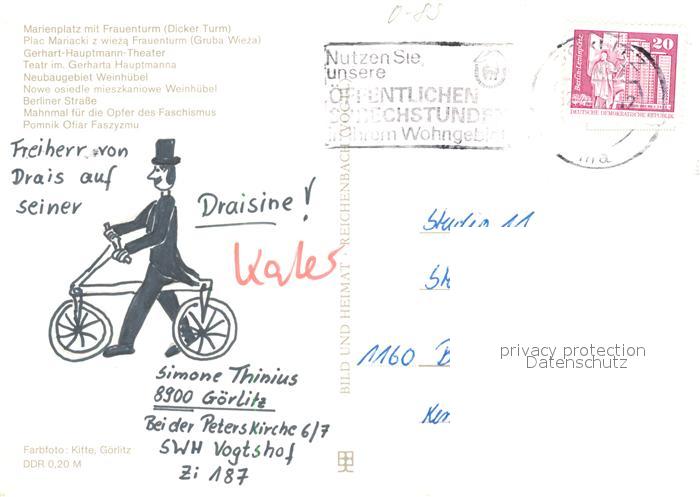 Marienplatz mit Frauenturm (Dicker Turm)
Plac Mariacki z wieżą Frauenturm (Gruba Wieża)
Gerhart-Hauptmann-Theater
Teatr im. Gerharta Hauptmanna
Neubaugebiet Weinhübel
Nowe osiedle mieszkaniowe Weinhübel
Berliner Straße
Mahnmal für die Opfer des Faschismus
Pomnik Ofiar Faszyzmu
Nutzen Sie
unsere
ÖFFENTLICHEN
SPRECHSTUNDEN
in Ihrem Wohngebiet
20
Berlin-Leninplatz
DEUTSCHE DEMOKRATISCHE REPUBLIK
Freiherr von
Drais auf
seiner
Draisine!
BILD UND HEIMAT · REICHENBACH
11
1160 B
privacy protection
Datenschutz
Simone Thinius
8900 Görlitz
Bei der Peterskirche 6/7
SWH Vogtshof
Zi 187
Farbfoto: Kitte, Görlitz
DDR 0,20 M